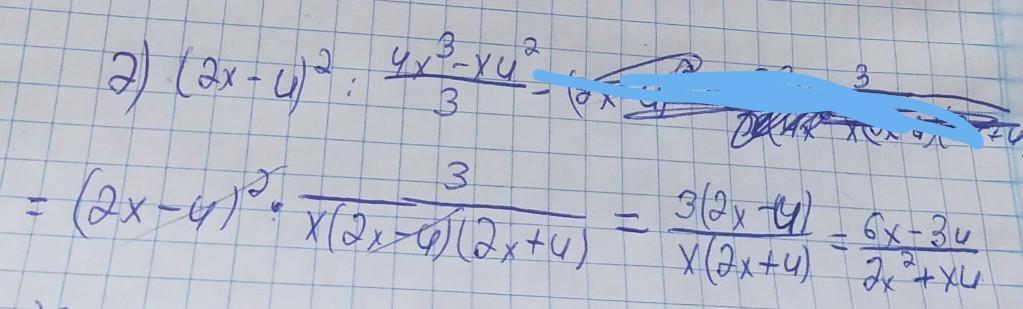 2) (2x-y)² : \frac{4x³-xy²}{3} = (2x
= (2x-y)² · \frac{3}{x(2x-y)(2x+y)} = \frac{3(2x-y)}{x(2x+y)} = \frac{6x-3y}{2x²+xy}